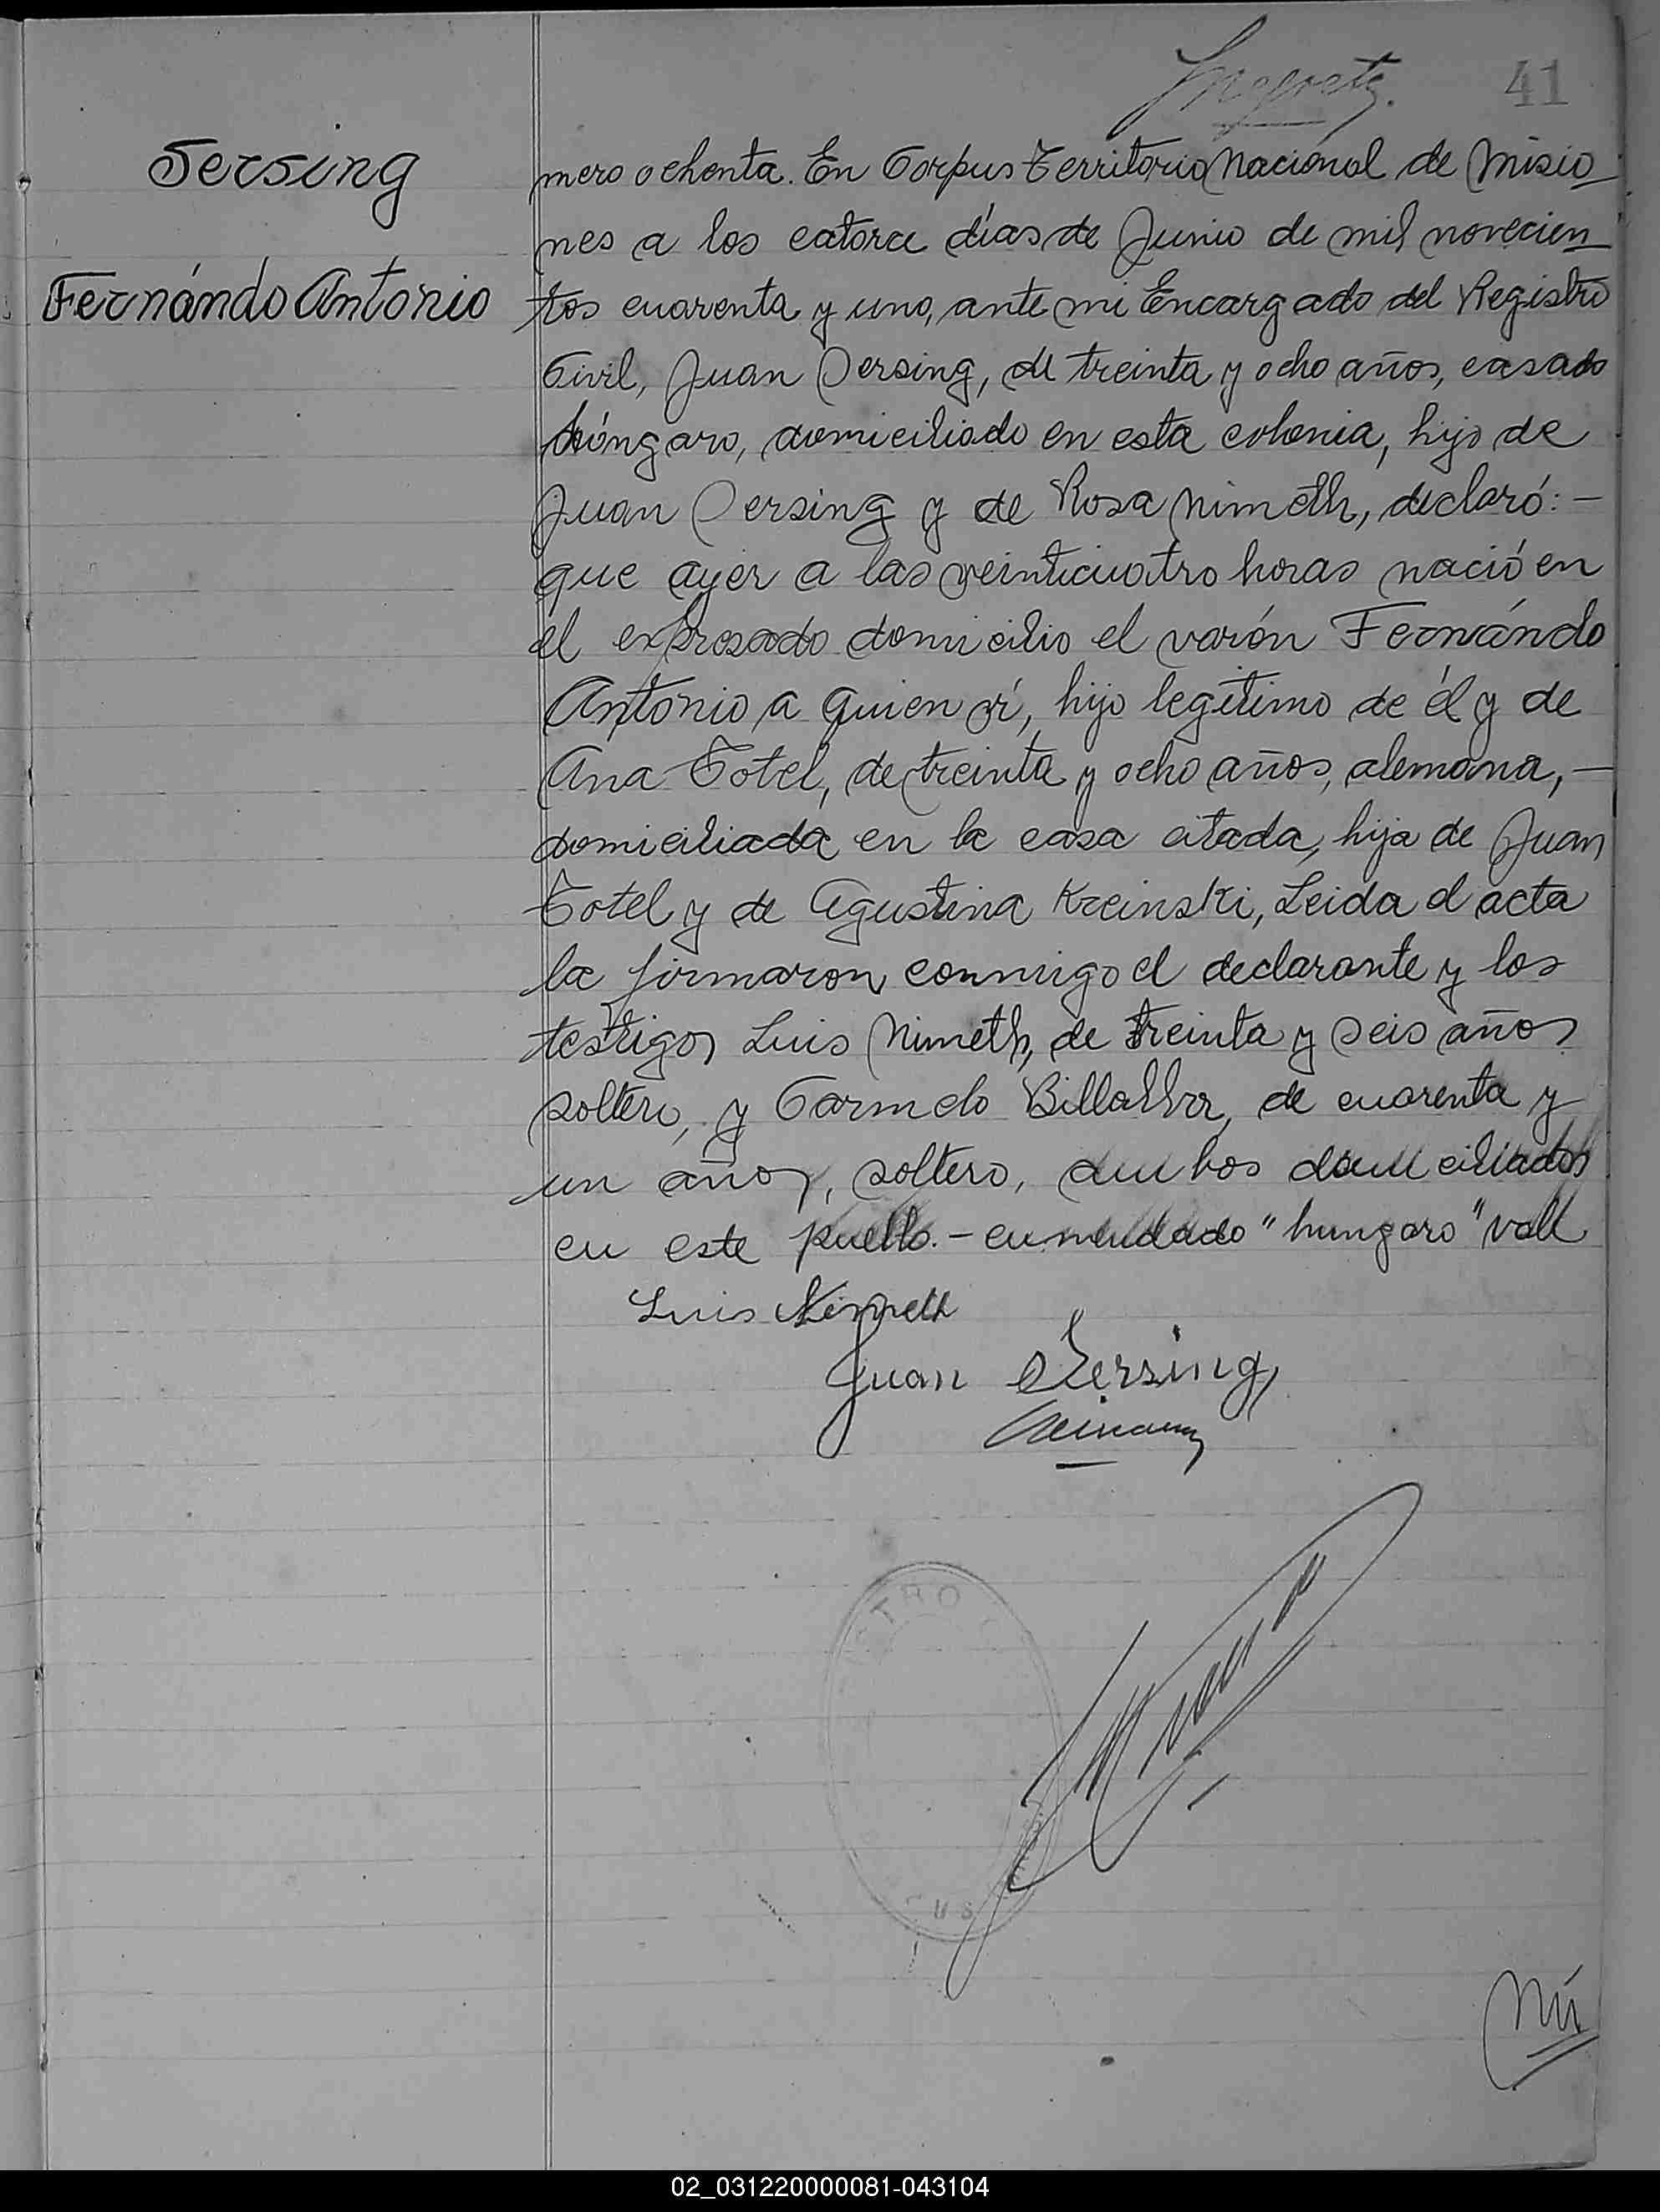 41
Sersing
Fernándo Antonio
mero ochenta. En Corpus Territorio Nacional de Misio
nes a los catorce días de Junio de mil novecien
tos cuarenta y uno, ante mi Encargado del Registro
Civil, Juan Sersing, de treinta y ocho años, casado
húngaro, domiciliado en esta colonia, hijo de
Juan Sersing y de Rosa Nimeth, declaró: -
que ayer a las veinticuatro horas nació en
el expresado domicilio el varón Fernándo
Antonio a quien ví, hijo legítimo de él y de
Ana Totel, de treinta y ocho años, alemana, -
domiciliada en la casa citada, hija de Juan
Totel y de Agustina Kreinski, Leida el acta
la firmaron conmigo el declarante y los
testigos Luis Nimeth, de treinta y seis años
soltero, y Carmelo Billalba, de cuarenta y
un años, soltero, ambos domiciliados
en este pueblo. - enmendado "hungaro" vale
Luis Nimeth
Juan Sersing
TRO
US
Nú
02_031220000081-043104